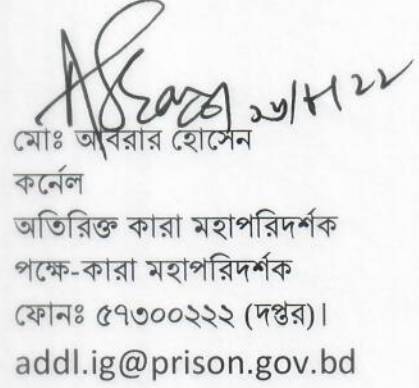 মোঃ আবরার হোসেন
কর্নেল
অতিরিক্ত কারা মহাপরিদর্শক
পক্ষে-কারা মহাপরিদর্শক
ফোনঃ ৫৭৩০০২২২ (দপ্তর)।
addl.ig@prison.gov.bd